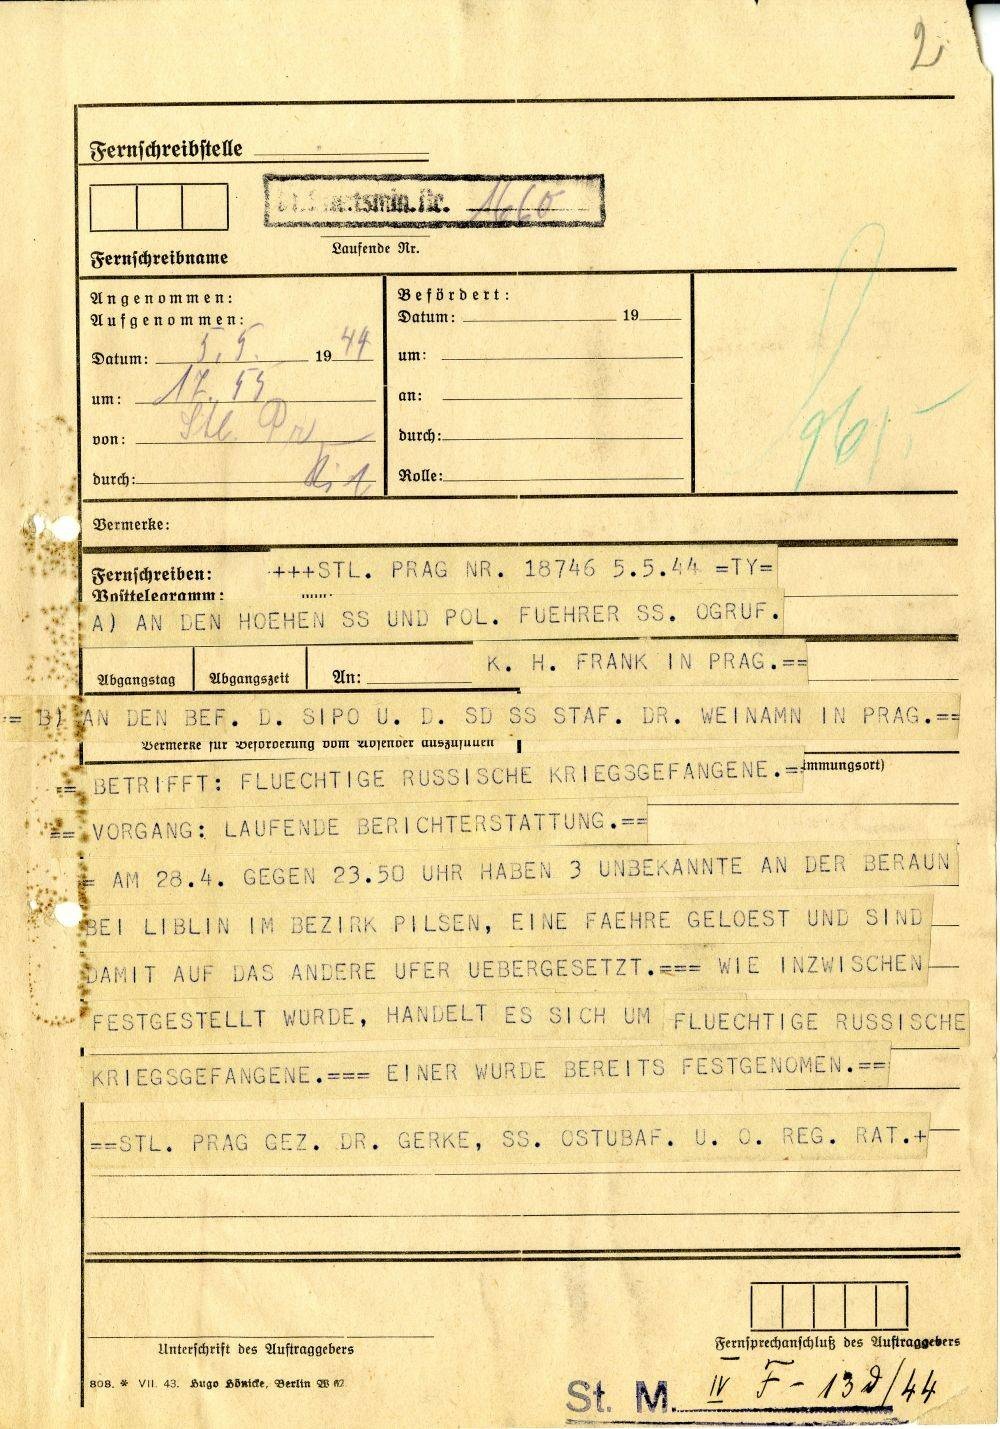 2
Fernschreibstelle
1660
Laufende Nr.
Fernschreibname
Angenommen:
Aufgenommen:
Datum: 5.5. 19 44
um: 17.55
von: Stl. Pr
durch:
Befördert:
Datum: 19
um:
an:
durch:
Rolle:
Vermerke:
Fernschreiben: +++STL. PRAG NR. 18746 5.5.44 =TY=
Posttelegramm:
A) AN DEN HOEHEN SS UND POL. FUEHRER SS. OGRUF.
Abgangstag Abgangszeit An: K. H. FRANK IN PRAG.==
= B) AN DEN BEF. D. SIPO U. D. SD SS STAF. DR. WEINAMN IN PRAG.==
Vermerke für Beförderung vom Absender auszufüllen
== BETRIFFT: FLUECHTIGE RUSSISCHE KRIEGSGEFANGENE.== mmungsort)
== VORGANG: LAUFENDE BERICHTERSTATTUNG.==
= AM 28.4. GEGEN 23.50 UHR HABEN 3 UNBEKANNTE AN DER BERAUN
BEI LIBLIN IM BEZIRK PILSEN, EINE FAEHRE GELOEST UND SIND
DAMIT AUF DAS ANDERE UFER UEBERGESETZT.=== WIE INZWISCHEN
FESTGESTELLT WURDE, HANDELT ES SICH UM FLUECHTIGE RUSSISCHE
KRIEGSGEFANGENE.=== EINER WURDE BEREITS FESTGENOMEN.==
==STL. PRAG GEZ. DR. GERKE, SS. OSTUBAF. U. O. REG. RAT.+
Unterschrift des Auftraggebers
Fernsprechanschluß des Auftraggebers
808. * VII. 43. Hugo Hönicke, Berlin W
St. M. IV F - 13 d/44